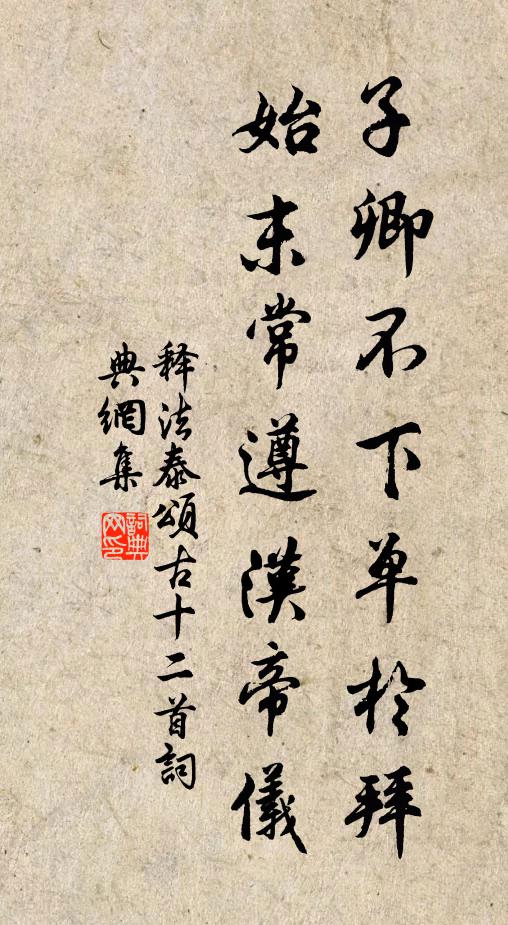 子卿不下单於拜
始末常遵漢帝儀
释法泰頌古十二首詞
典網集
詞典
网印